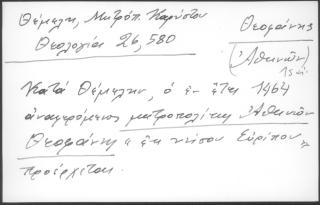 Θέμελη, Μητρόπ. Καρύστου
Θεοφάνης
Θεολογία 26, 580
(Ἀθηνῶν)
15 αἰ.
Κατά Θέμελην, ὁ ἐν ἔτει 1464
ἀναφερόμενος μητροπολίτης Ἀθηνῶν
Θεοφάνης "ἐκ νήσου Εὐρίπου"
προέρχεται.